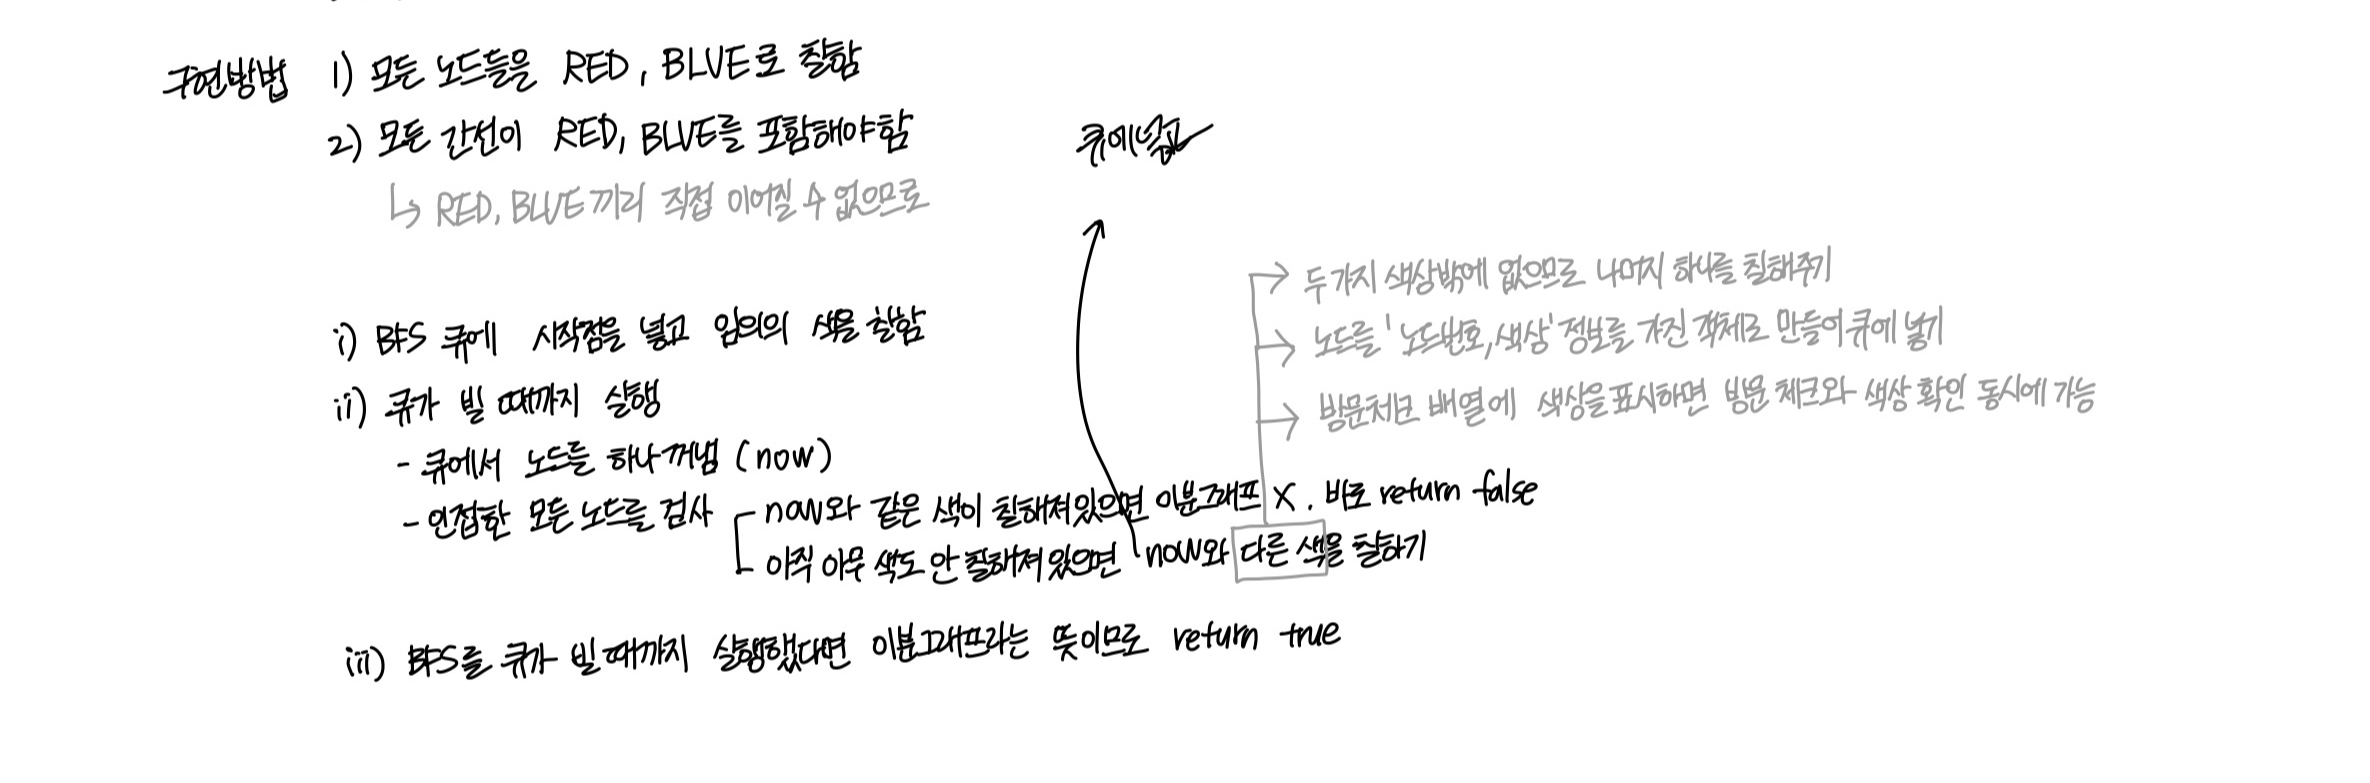 구현방법 1) 모든 노드들을 RED, BLUE로 칠함
2) 모든 간선이 RED, BLUE를 포함해야함
↳ RED, BLUE끼리 직접 이어질 수 없으므로
큐에넣고
i) BFS 큐에 시작점을 넣고 임의의 색을 칠함
ii) 큐가 빌 때까지 실행
- 큐에서 노드를 하나 꺼냄 (now)
- 인접한 모든 노드를 검사
now와 같은 색이 칠해져있으면 이분그래프 X. 바로 return false
아직 아무 색도 안 칠해져있으면 now와 다른 색을 칠하기
→ 두가지 색상밖에 없으므로 나머지 하나를 칠해주기
→ 노드를 '노드번호, 색상' 정보를 가진 객체로 만들어 큐에 넣기
→ 방문체크 배열에 색상을 표시하면 방문 체크와 색상 확인 동시에 가능
iii) BFS를 큐가 빌 때까지 실행했다면 이분그래프라는 뜻이므로 return true